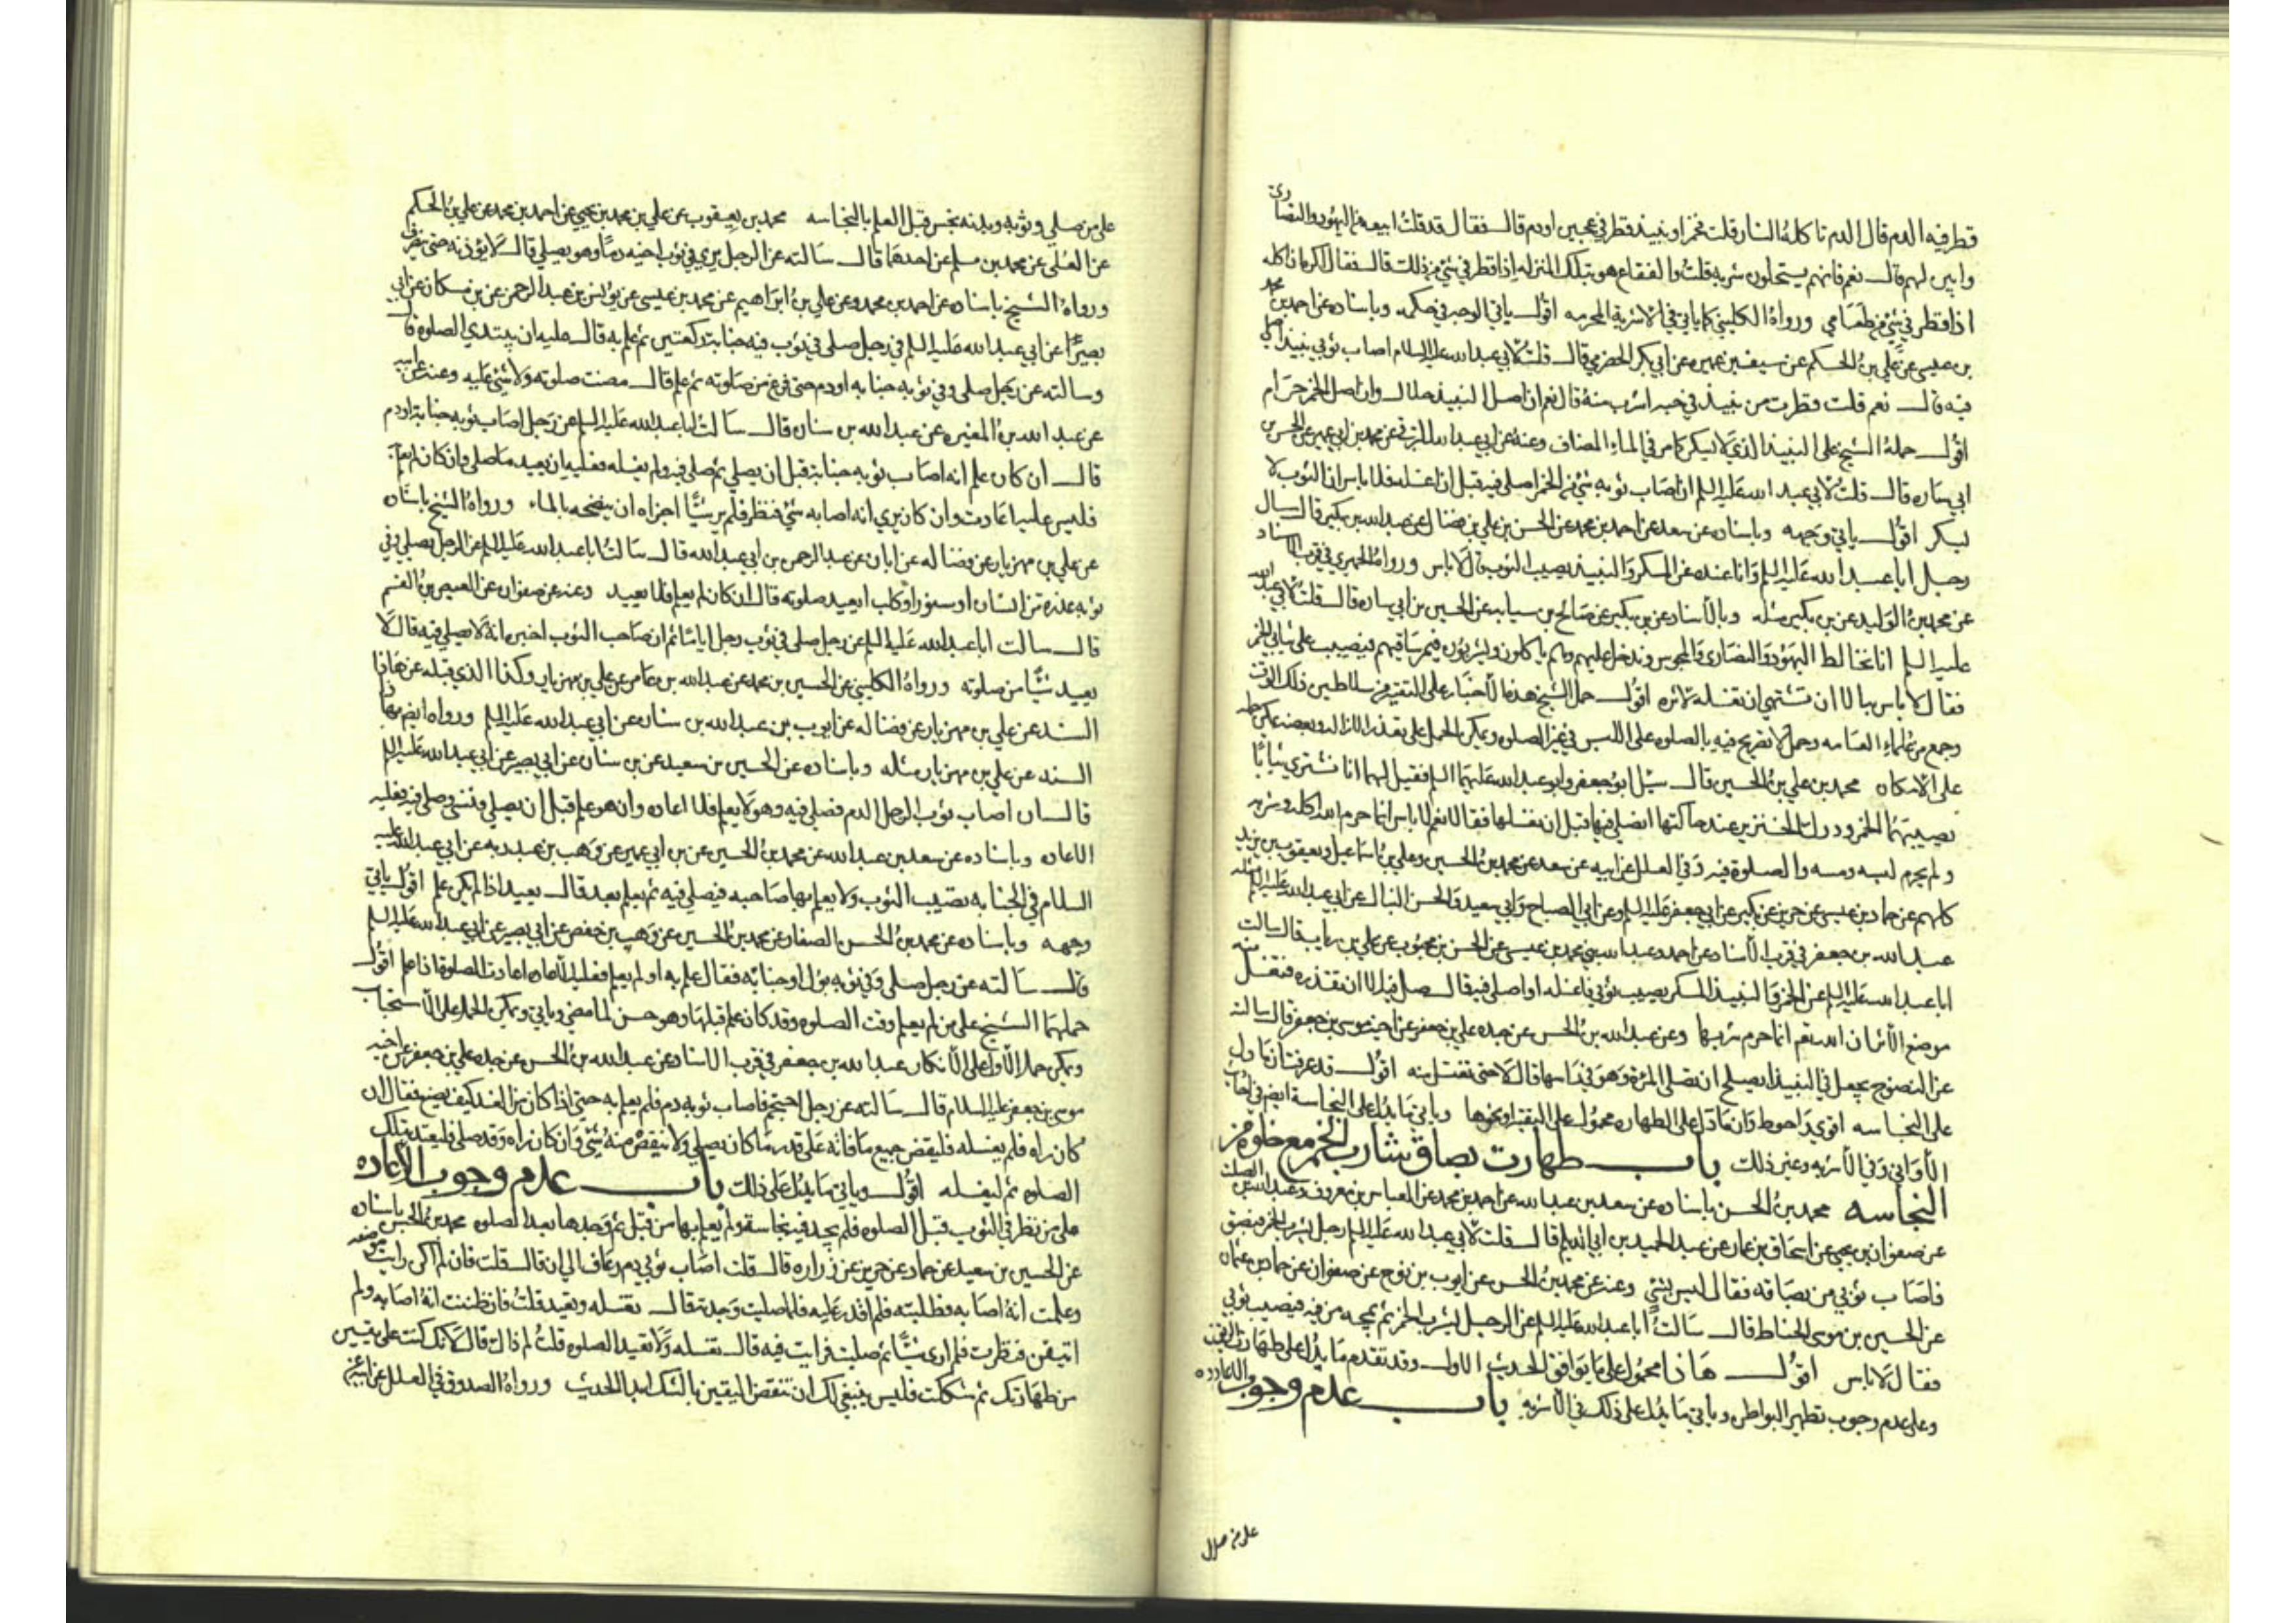 قطر فيه الدم قال الدم تاكله النار قلت فخمر او نبيذ قطر في عجين او دم قال فقال قد قلت ابيعه من اليهود والنصارى
وابين لهم قال نعم فانهم يستحلون شربه قلت والفقاع هو بتلك المنزله اذا قطر في شئ من ذلك قال فقال اكره ان اكله
اذا قطر في شئ من طعامي ورواه الكليني كما ياتي في الاشربة المحرمه اقول ياتي الوجه في حكمه وباسناده عن احمد بن محمد
بن عيسى عن علي بن الحكم عن سيف بن عميره عن ابي بكر الحضرمي قال قلت لابي عبد الله عليه السلام اصاب ثوبي نبيذ اصلي
فيه قال نعم قلت قطرت من نبيذ في حب اشرب منه قال نعم ان اصل النبيذ حلال وان اصل الخمر حرام
اقول حمله الشيخ على النبيذ الذي لا يسكر كما مر في الماء المضاف وعنه عن ابي عبد الله البرقي عن محمد بن ابي عمير عن الحسن بن
ابي ساره قال قلت لابي عبد الله عليه السلم ان اصاب ثوبه شئ من الخمر اصلي فيه قبل ان اغسله قال لا باس ان الثوب لا
يسكر اقول ياتي وجهه وباسناده عن سعد عن احمد بن محمد عن الحسن بن علي بن فضال عن عبد الله بن بكير قال سال
رجل ابا عبد الله عليه السلم وانا عنده عن المسكر والنبيذ يصيب الثوب قال لا باس ورواه الحميري في قرب الاسناد
عن محمد بن الوليد عن بن بكير مثله وبالاسناد عن بن بكير عن صالح بن سيابه عن الحسين بن ابي ساره قال قلت لابي عبد الله
عليه السلم انا نخالط اليهود والنصارى والمجوس وندخل عليهم وهم ياكلون ويشربون فيمر ساقيهم فيصيب على ثيابي الخمر
فقال لا باس به الا ان تشتهي ان تغسله لاثره اقول حمل الشيخ هذه الاخبار على التقيه من سلاطين ذلك الوقت
وجمع من علماء العامه وحمل ما لا تصريح فيه بالصلوه على اللبس في غير الصلوه ويمكن الحمل على تعذر الازاله وبعضه يمكن حمله
على الانكار محمد بن علي بن الحسين قال سئل ابو جعفر وابو عبد الله عليهما السلم فقيل لهما انا نشتري ثيابا
يصيبها الخمر وودك الخنزير عند حاكتها انصلي فيها قبل ان نغسلها فقالا نعم لا باس انما حرم الله اكله وشربه
ولم يحرم لبسه ومسه والصلوة فيه وفي العلل عن ابيه عن سعد عن محمد بن الحسين وعلي بن اسماعيل ويعقوب بن يزيد
كلهم عن حماد بن عيسى عن حريز عن بكير عن ابي جعفر عليه السلم وعن ابي الصباح وابي سعيد والحسن النبال عن ابي عبد الله عليه السلم مثله
عبد الله بن جعفر في قرب الاسناد عن احمد وعبد الله بني محمد بن عيسى عن الحسن بن محبوب عن علي بن رياب قال سالت
ابا عبد الله عليه السلم عن الخمر والنبيذ المسكر يصيب ثوبي فاغسله او اصلي فيه قال صل فيه الا ان تقذره فتغسل منه
موضع الاثر ان الله تعم انما حرم شربها وعن عبد الله بن الحسن عن جده علي بن جعفر عن اخيه موسى بن جعفر قال سالته
عن النضوح يجعل في النبيذ ايصلح ان تصلي المراة وهو في راسها قال لا حتى تغتسل منه اقول قد عرفت ان ما دل
على النجاسه اقوى واحوط وان ما دل على الطهاره محمول على التقية او نحوها وياتي ما يدل على النجاسة ايضا في احاديث
الاواني وفي الاشربه وغير ذلك باب طهارت بصاق شارب الخمر مع خلوه من
النجاسه محمد بن الحسن باسناده عن سعد بن عبد الله عن احمد بن محمد عن العباس بن معروف وعبد الله بن الصلت
عن صفوان بن يحيى عن اسحاق بن عمار عن عبد الحميد بن ابي الديلم قال قلت لابي عبد الله عليه السلم رجل يشرب الخمر فيبصق
فاصاب ثوبي من بصاقه فقال ليس بشئ وعنه عن محمد بن الحسن عن ايوب بن نوح عن صفوان عن حماد بن عثمان
عن الحسين بن موسى الحناط قال سالت ابا عبد الله عليه السلم عن الرجل يشرب الخمر ثم يمجه من فيه فيصيب ثوبي
فقال لا باس اقول هاذا محمول على ما يوافق الحديث الاول وقد تقدم ما يدل على طهارت
وعلى عدم وجوب تطهير البواطن وياتي ما يدل على ذلك في الاشربه باب عدم وجوب الاعاده
على من صلى
على من صلي وثوبه وبدنه نجس قبل العلم بالنجاسه محمد بن يعقوب عن علي بن محمد بن يحيى عن احمد بن محمد عن علي بن الحكم
عن العلى عن محمد بن مسلم عن احدهما قال سالته عن الرجل يرى في ثوب اخيه دما وهو يصلي قال لا يؤذنه حتى ينصرف
ورواه الشيخ باسناده عن احمد بن محمد وعن علي بن ابراهيم عن محمد بن عيسى عن يونس بن عبد الرحمن عن بن مسكان عن ابي
بصير عن ابي عبد الله عليه السلم في رجل صلى في ثوب فيه جنابة ركعتين ثم علم به قال عليه ان يبتدي الصلوه قال
وسالته عن رجل صلى وفي ثوبه جنابه او دم حتى فرغ من صلوته ثم علم قال مضت صلوته ولا شئ عليه وعنه عن ابيه
عن عبد الله بن المغيره عن عبد الله بن سنان قال سالت ابا عبد الله عليه السلم عن رجل اصاب ثوبه جنابة او دم
قال ان كان علم انه اصاب ثوبه جنابة قبل ان يصلي ثم صلى فيه ولم يغسله فعليه ان يعيد ما صلى وان كان لم يعلم به
فليس عليه اعادت وان كان يرى انه اصابه شئ فنظر فلم ير شيئا اجزاه ان ينضحه بالماء ورواه الشيخ باسناده
عن علي بن مهزيار عن فضاله عن ابان عن عبد الرحمن بن ابي عبد الله قال سالت ابا عبد الله عليه السلم عن الرجل يصلي وفي
ثوبه عذرة من انسان او سنور او كلب ايعيد صلوته قال ان كان لم يعلم فلا يعيد وعنه عن صفوان عن العيص بن القسم
قال سالت ابا عبد الله عليه السلم عن رجل صلى في ثوب رجل اياما ثم ان صاحب الثوب اخبره انه لا يصلي فيه قال لا
يعيد شيئا من صلوته ورواه الكليني عن الحسين بن محمد عن عبد الله بن عامر عن علي بن مهزيار وكذا الذي قبله عن هاذا
السند عن علي بن مهزيار عن فضاله عن ايوب بن عبد الله بن سنان عن ابي عبد الله عليه السلم ورواه ايضا بهاذا
السند عن علي بن مهزيار مثله وباسناده عن الحسين بن سعيد عن بن سنان عن ابي بصير عن ابي عبد الله عليه السلم
قال ان اصاب ثوب الرجل الدم فصلى فيه وهو لا يعلم فلا اعاده وان هو علم قبل ان يصلي ونسي وصلى فيه فعليه
الاعاده وباسناده عن سعد بن عبد الله عن محمد بن الحسين عن بن ابي عمير عن وهب بن عبد ربه عن ابي عبد الله عليه
السلام في الجنابه تصيب الثوب ولا يعلم بها صاحبه فيصلي فيه ثم يعلم بعد قال يعيد اذا لم يكن علم اقول ياتي
وجهه وباسناده عن محمد بن الحسن الصفار عن محمد بن الحسين عن وهيب بن حفص عن ابي بصير عن ابي عبد الله عليه السلم
قال سالته عن رجل صلى وفي ثوبه بول او جنابه فقال علم به او لم يعلم فعليه الاعاده اعادت الصلوة اذا علم اقول
حملهما الشيخ على من لم يعلم وقت الصلوه وقد كان علم قبلها وهو حسن لما مضى وياتي ويمكن الحمل على الاستحباب
ويمكن حمل الاول على الانكار عبد الله بن جعفر في قرب الاسناد عن عبد الله بن الحسن عن جده علي بن جعفر عن اخيه
موسى بن جعفر عليه السلام قال سالته عن رجل احتجم فاصاب ثوبه دم فلم يعلم به حتى اذا كان من الغد كيف يصنع فقال ان
كان راه فلم يغسله فليقض جميع ما فاته على قدر ما كان يصلي ولا ينقص منه شئ وان كان راه وقد صلى فليعتد بتلك
الصلوه ثم ليغسله اقول وياتي ما يدل على ذلك باب عدم وجوب الاعاده
على من نظر في الثوب قبل الصلوه فلم يجد فيه نجاسة ولم يعلم بها من قبل ثم وجدها بعد الصلوه محمد بن الحسن باسناده
عن الحسين بن سعيد عن حماد عن حريز عن زراره قال قلت اصاب ثوبي دم رعاف الى ان قال قلت فان لم اكن رايت موضعه
وعلمت انه اصابه فطلبته فلم اقدر عليه فلما صليت وجدته قال تغسله وتعيد قلت فان ظننت انه اصابه ولم
اتيقن فنظرت فلم ارى شيئا ثم صليت فرايت فيه قال تغسله ولا تعيد الصلوه قلت لم ذالك قال لانك كنت على يقين
من طهارتك ثم شككت فليس ينبغي لك ان تنقض اليقين بالشك ابدا الحديث ورواه الصدوق في العلل عن ابيه عن